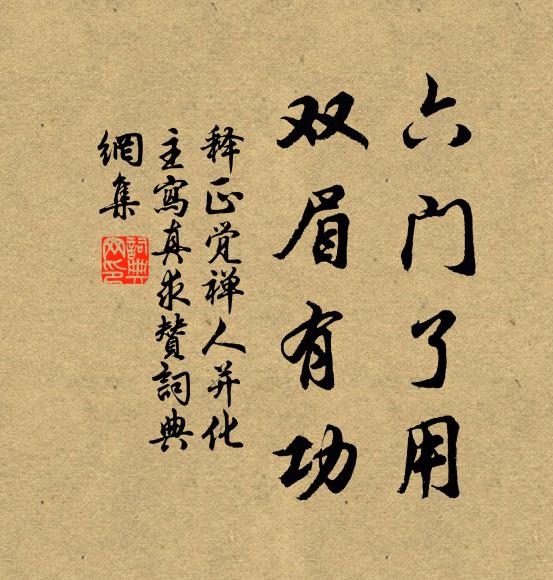 六门了用
双眉有功
释正觉禅人并化
主写真求赞词典
網集
詞典網印